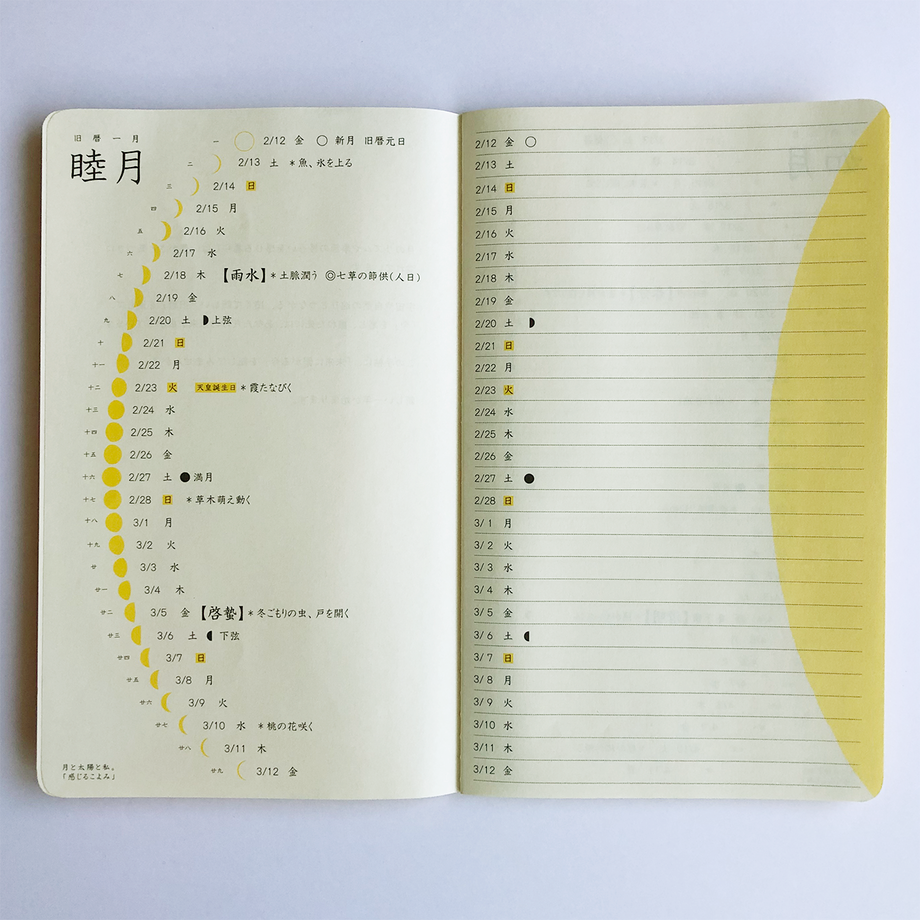 旧暦一月
睦月
一 2/12 金 ○ 新月 旧暦元日
二 2/13 土 ＊魚、氷を上る
三 2/14 日
四 2/15 月
五 2/16 火
六 2/17 水
七 2/18 木 【雨水】＊土脈潤う ◎七草の節供(人日)
八 2/19 金
九 2/20 土 ◗上弦
十 2/21 日
十一 2/22 月
十二 2/23 火 天皇誕生日 ＊霞たなびく
十三 2/24 水
十四 2/25 木
十五 2/26 金
十六 2/27 土 ●満月
十七 2/28 日 ＊草木萌え動く
十八 3/1 月
十九 3/2 火
廿 3/3 水
廿一 3/4 木
廿二 3/5 金 【啓蟄】＊冬ごもりの虫、戸を開く
廿三 3/6 土 ◖下弦
廿四 3/7 日
廿五 3/8 月
廿六 3/9 火
廿七 3/10 水 ＊桃の花咲く
廿八 3/11 木
廿九 3/12 金
月と太陽と私。
「感じるこよみ」
2/12 金 ○
2/13 土
2/14 日
2/15 月
2/16 火
2/17 水
2/18 木
2/19 金
2/20 土 ◗
2/21 日
2/22 月
2/23 火
2/24 水
2/25 木
2/26 金
2/27 土 ●
2/28 日
3/1 月
3/2 火
3/3 水
3/4 木
3/5 金
3/6 土 ◖
3/7 日
3/8 月
3/9 火
3/10 水
3/11 木
3/12 金